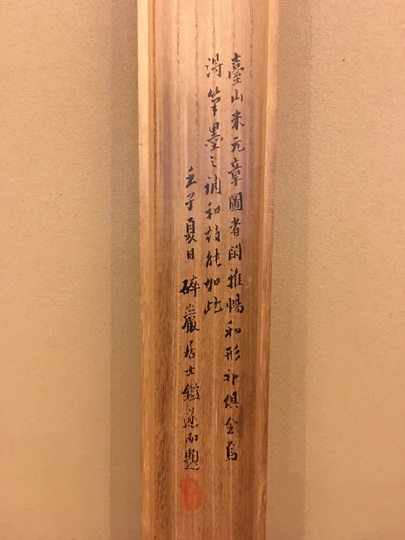 臺山米元章圖者閑雅暢和形神俱全焉
得筆墨之調和故能如此
壬子夏日 碎巖居士鑑定而題